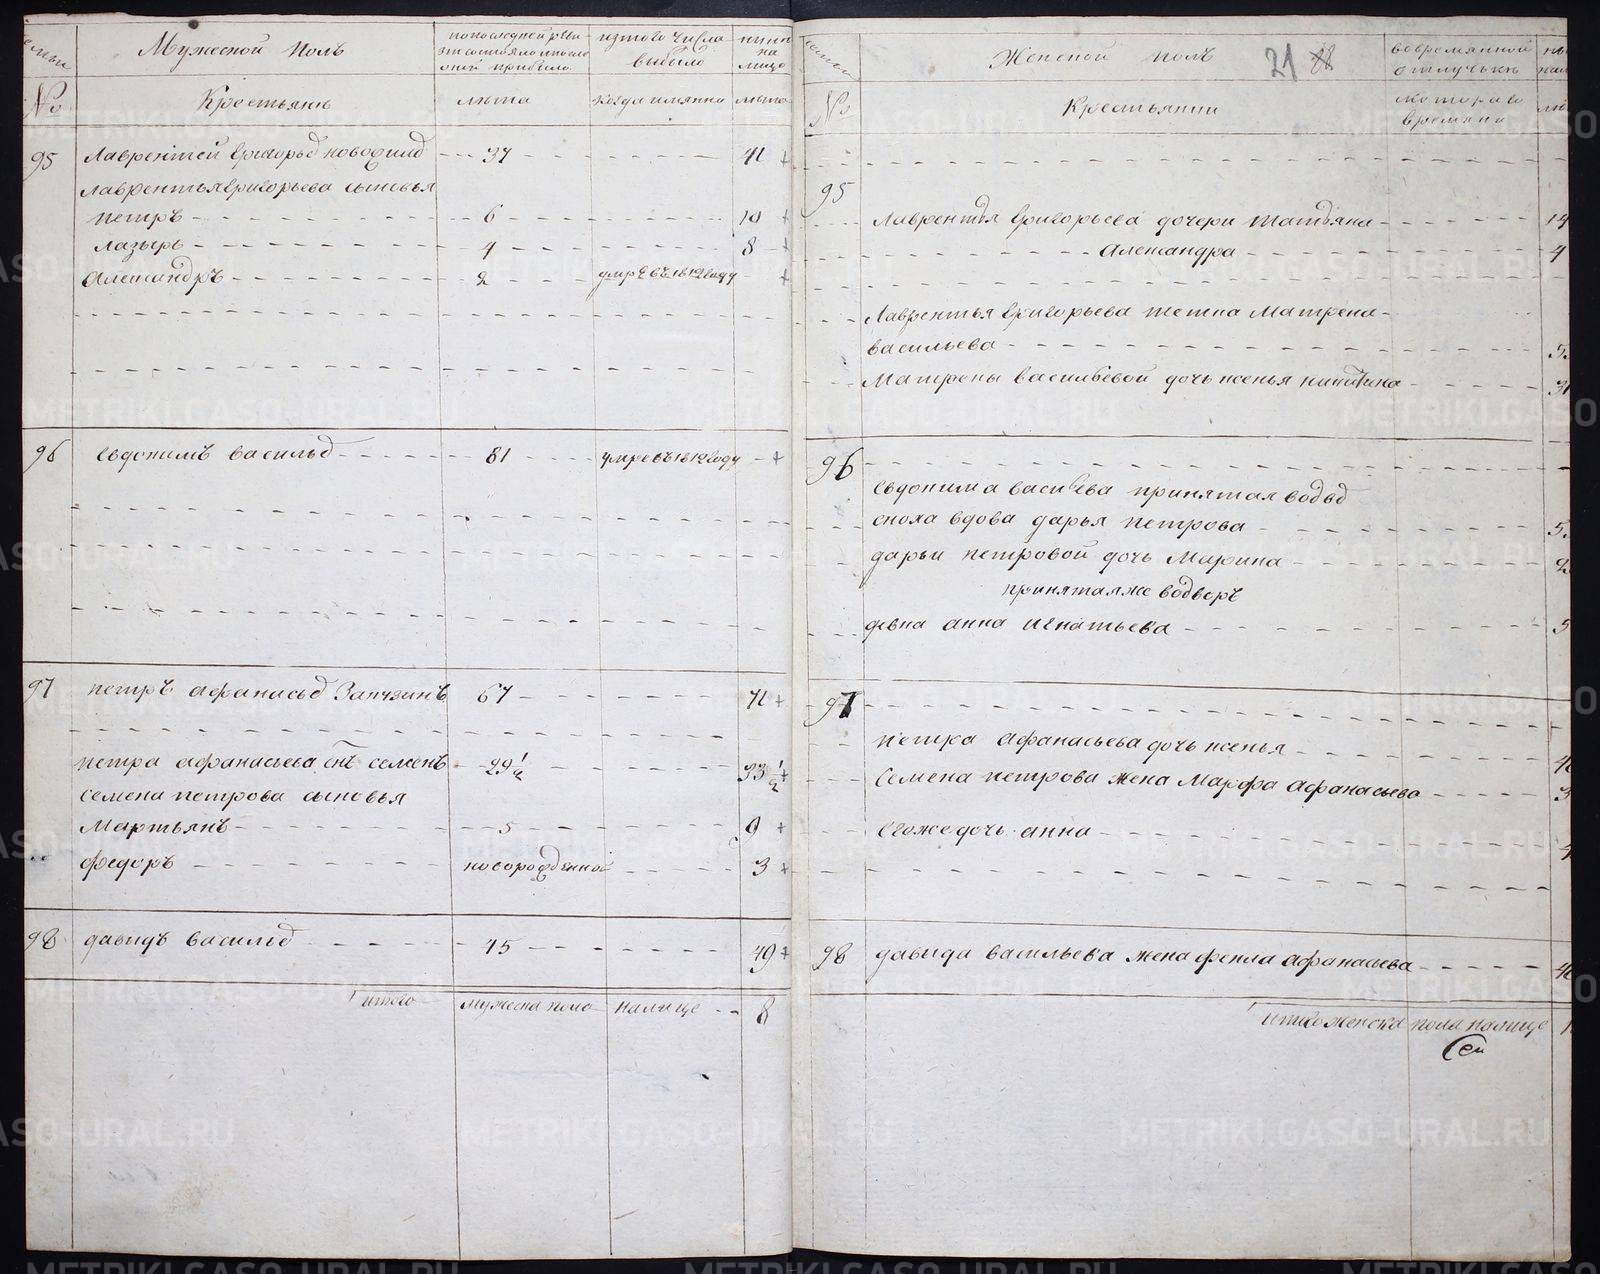 Мужеской полъ
выбыло
на лицо
№
Крестьянъ
лѣта
когда имянно
лѣта
95 Лаврентей Григорьев 37 41
Лаврентья Григорьева сыновья
Петръ 6 10
Лазырь 4 8
Александръ 2 умре въ 1812 году
96 Евдокимъ Васильев 81 умре въ 1812 году
97 Петръ Афанасьев 67 71
Петра Афанасьева сынъ Семенъ 29 1/2 33 1/2
Семена Петрова сыновья
Мартьянъ 5 9
Федоръ новорожденной 3
98 Давидъ Васильев 45 49
Итого мужеска пола налице 8
Женской полъ 21
во временной
отлучьке
№
Крестьянки
которого
времяни
95
Лаврентья Григорьева дочери Татьяна 14
Александра 4
Лаврентья Григорьева тетка Матрена
Васильева
Матрены Васильевой дочь Ксенья Никитина
96
Евдокима Васильева принятая в дом
сноха вдова Дарья Петрова
Дарьи Петровой дочь Марина
принята же
девка Анна Игнатьева
97
Петра Афанасьева дочь Ксенья
Семена Петрова жена Марфа Афанасьева
Егоже дочь Анна
98 Давыда Васильева жена Фекла Афанасьева
Итого женска пола налице
METRIKI.GASO-URAL.RU